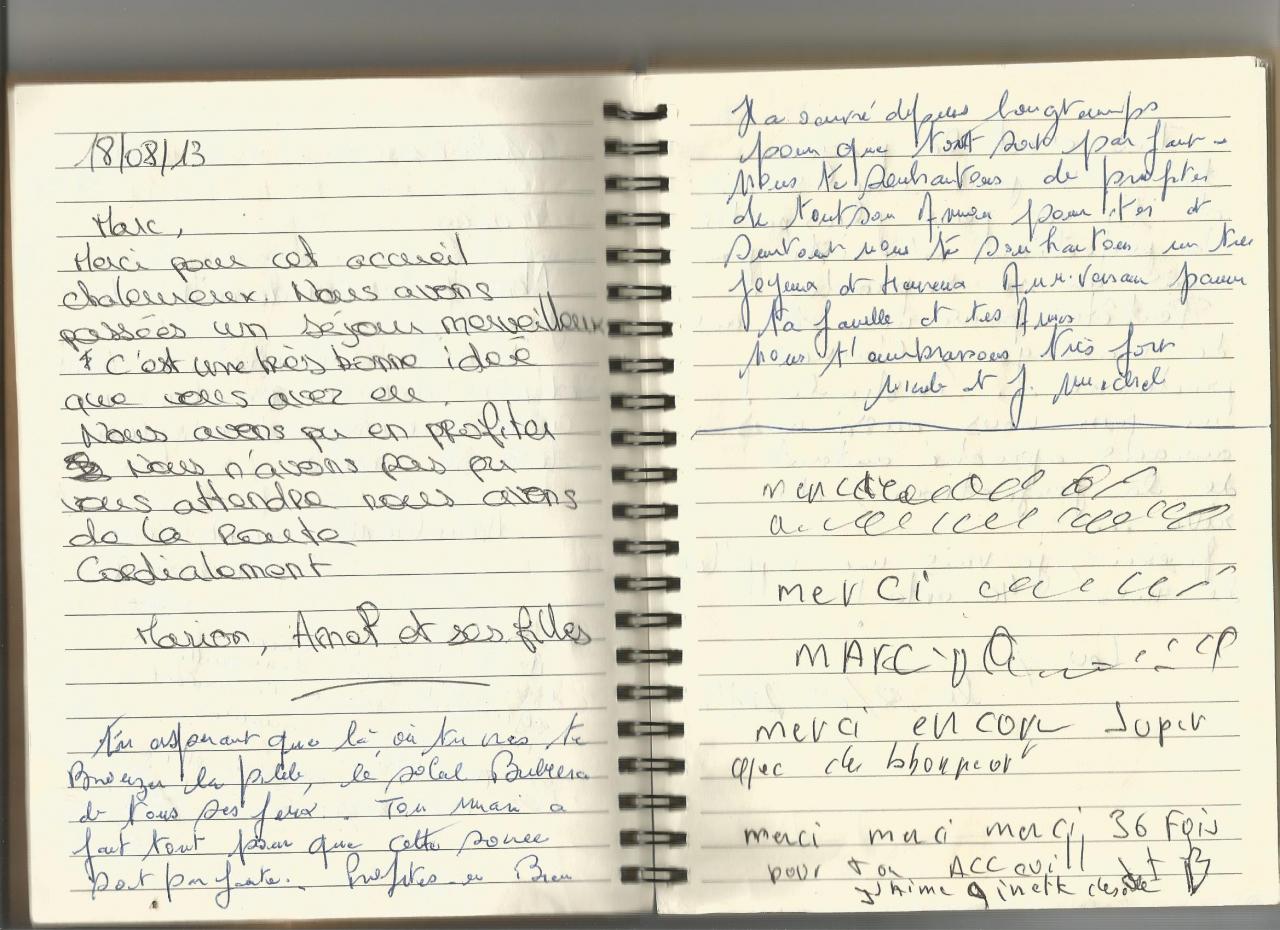 18/08/13
Marc,
Merci pour cet accueil
chaleureux. Nous avons
passées un séjour merveilleux
C'est une très bonne idée
que vous avez eu.
Nous avons pu en profiter
Nous n'avons pas pu
vous attendre nous avons
de la route
Cordialement
Marion, et ses filles
En esperant que là, où tu vas te
la , le soleil
de tous ses feux. Ton mari a
fait tout pour que cette soirée
soit parfaite. Profites en Bien
Il a depuis longtemps
pour que tout soit parfait
Nous te souhaitons de profiter
de tout son Amour pour toi et
surtout nous te souhaitons un très
joyeux et Heureux Anniversaire parmi
ta famille et tes Amis
Nous t'embrassons très fort
Nicole et J. Michel
merci
MARC
merci encore super
avec du bhonheur
merci merci merci 36 Fois
pour ton ACCQUill